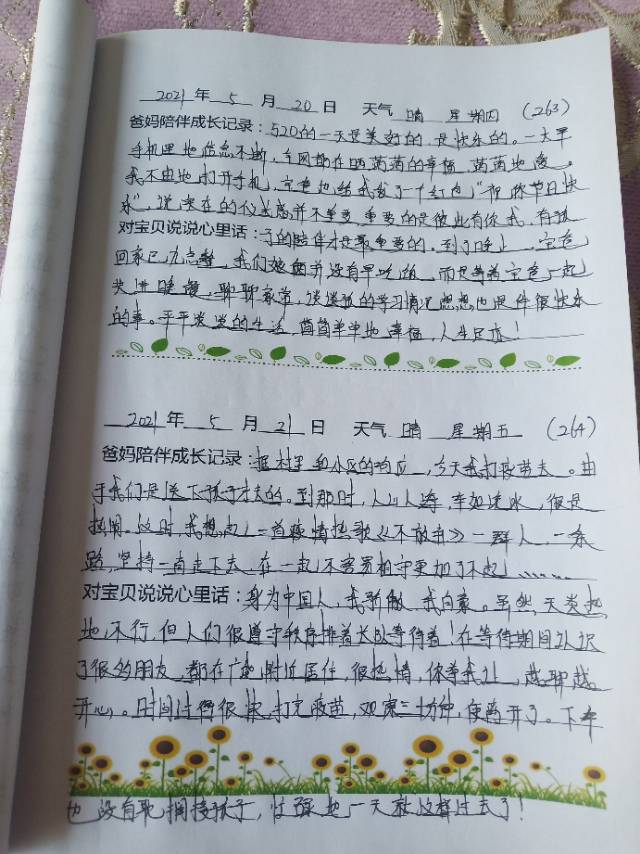 2021年 5月 20日 天气 晴 星期四 (263)
爸妈陪伴成长记录:520的一天是美好的,是快乐的。一大早
手机里地信息不断,全网都在晒满满的幸福,满满地爱。
我不由地打开手机,宝爸也给我发了一个红包"祝你节日快
乐",说实在的仪式感并不重要,重要的是彼此有你我,有孩
对宝贝说说心里话:子的陪伴才是最重要的。到了晚上,宝爸
回家已九点钟,我们娘俩并没有早吃饭,而是等着宝爸一起
共进晚餐,聊聊家常,谈谈孩的学习情况想想也是件很快乐
的事。平平淡淡的生活,简简单单地幸福,人生足亦!
2021年 5月 21日 天气 晴 星期五 (264)
爸妈陪伴成长记录:据村里和小区的响应,今天我打疫苗去。由
于我们是送下孩子才去的。到那时,人山人海,车如流水,很是
热闹。这时,我想起了一首疫情热歌《不放弃》一群人,一条
路,坚持一直走下去,在一起不容易相守更加了不起……
对宝贝说说心里话:身为中国人,我骄傲,我自豪。虽然,天炎热
地不行,但人们很遵守秩序排着长队等待着!在等待期间认识
了很多朋友,都在广场附近居住,很热情,你等我让,越聊越
开心。时间过得很快,打完疫苗,观察三十分钟,便离开了。下午
也没有耽搁接孩子,忙碌地一天就这样过去了!